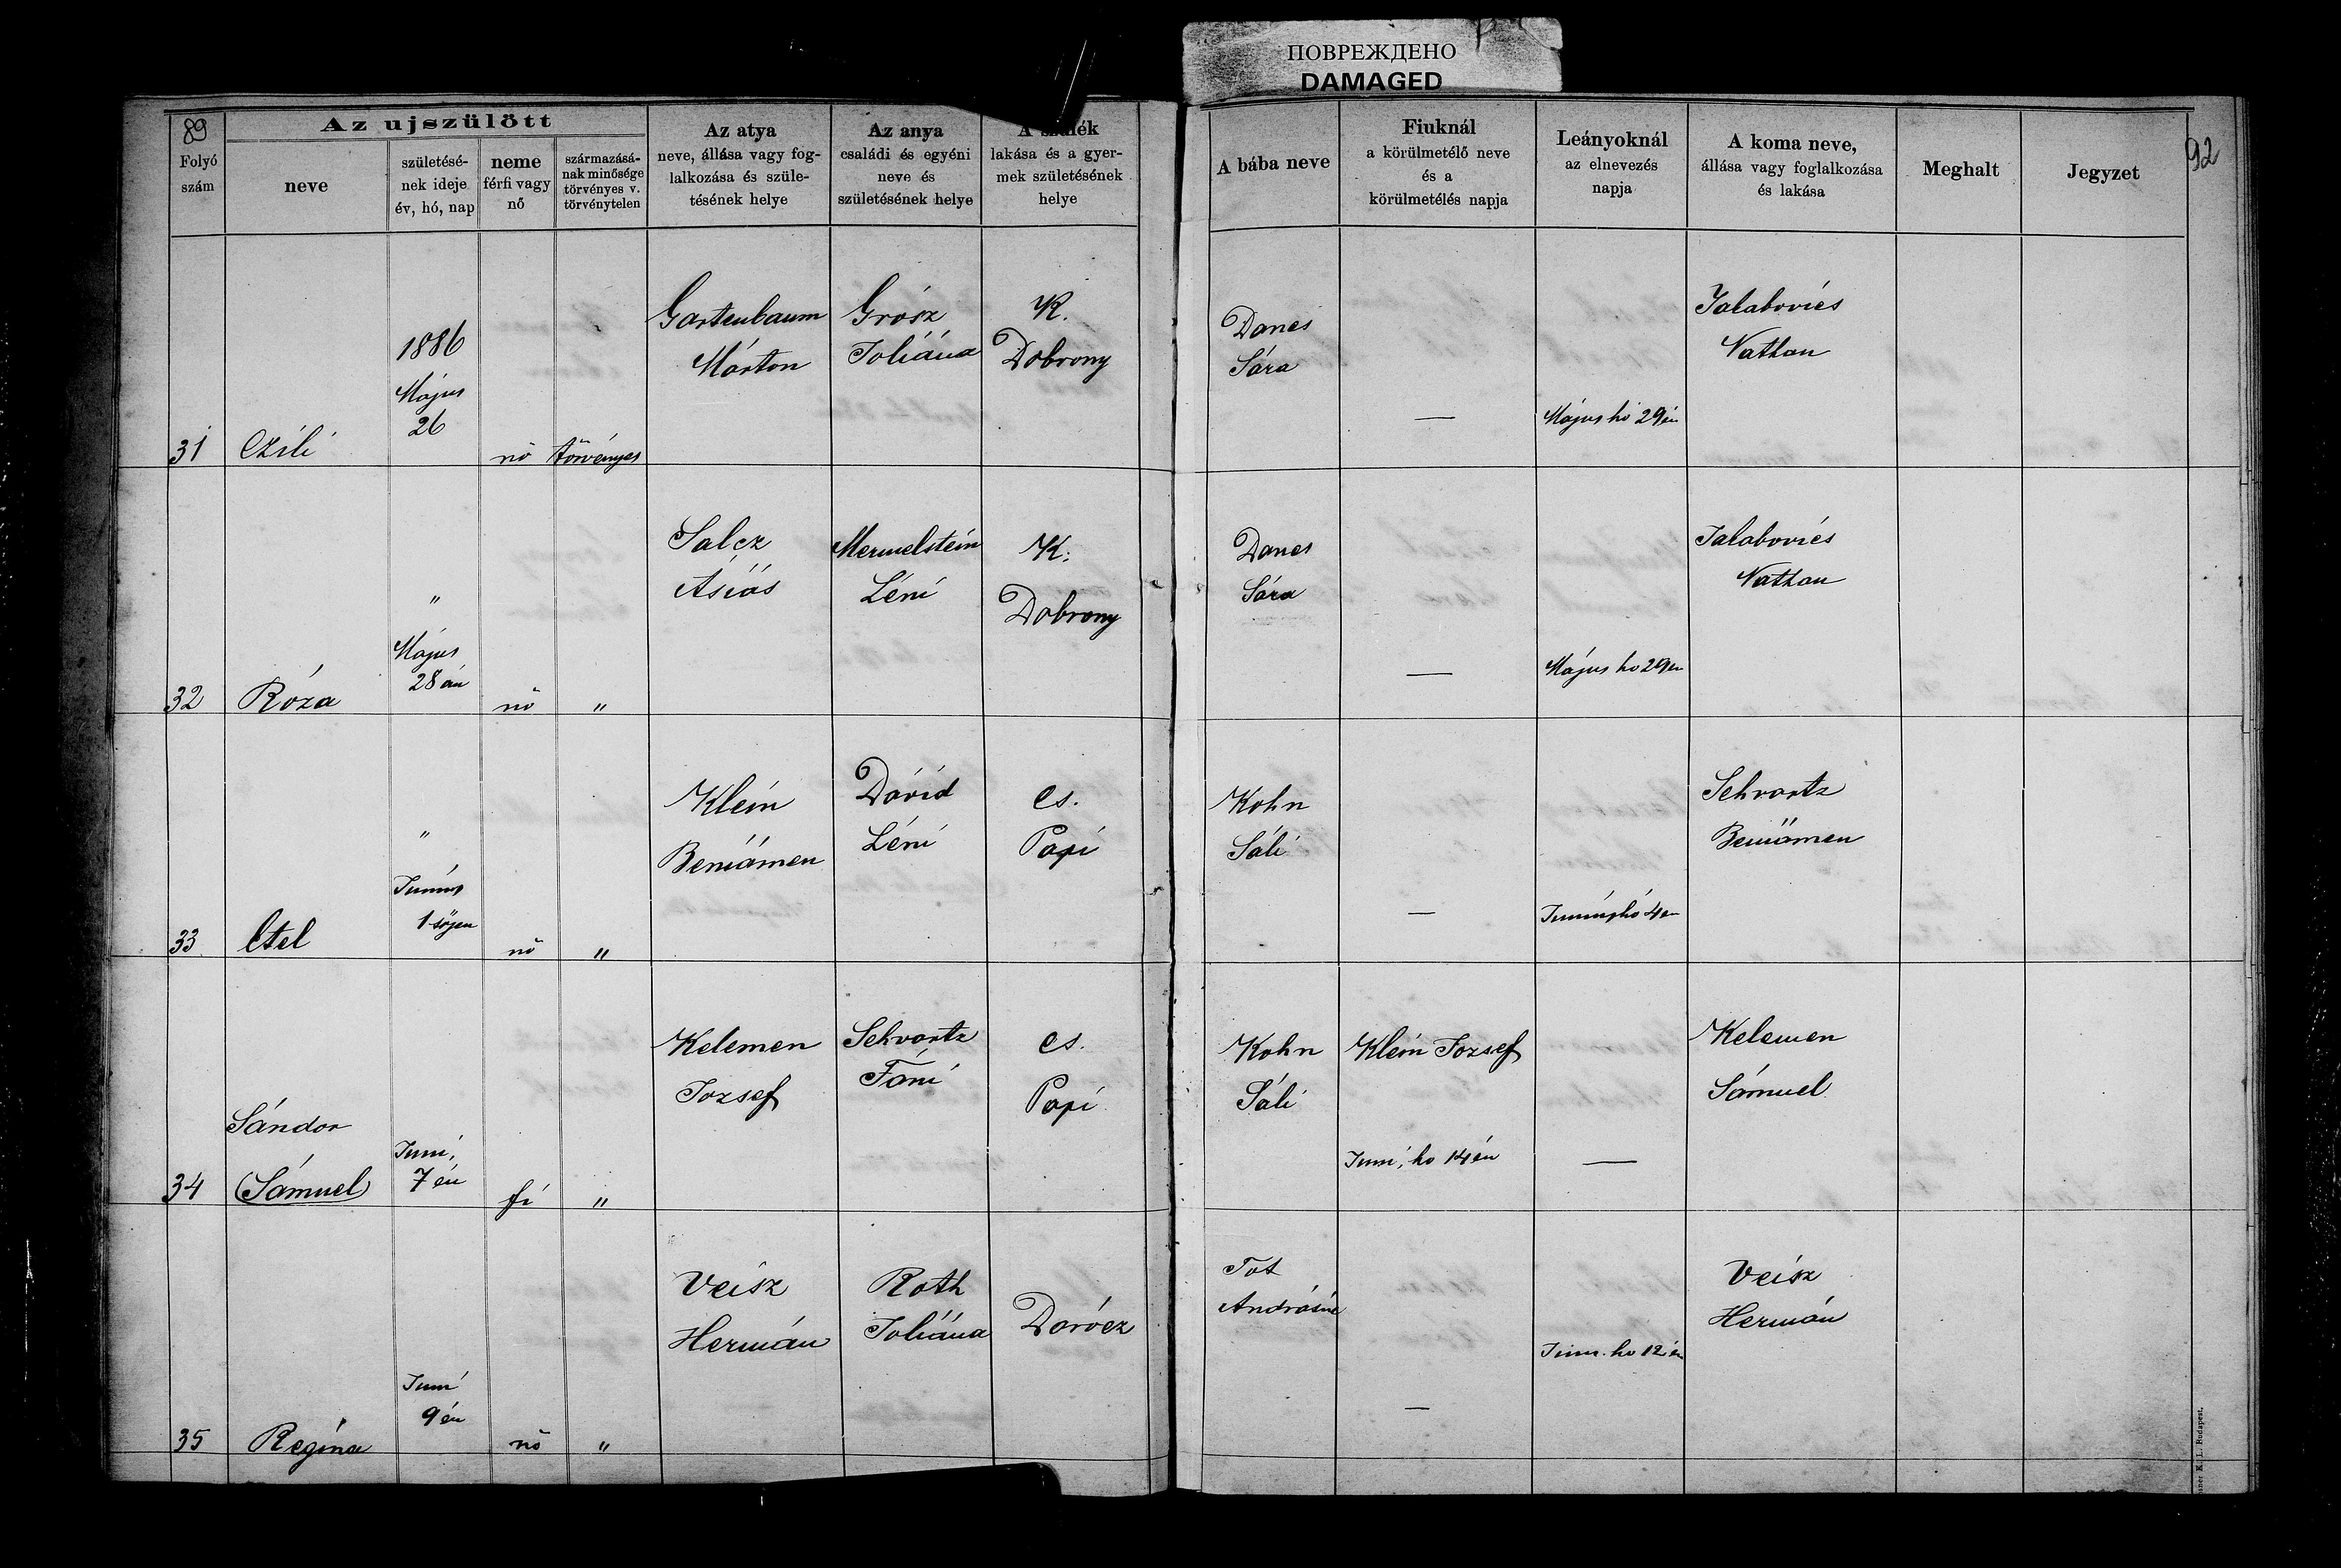 ПОВРЕЖДЕНО
DAMAGED
89
Az ujszülött
Folyó szám
neve
születésé-
nek ideje
év, hó, nap
neme
férfi vagy
nő
származásá-
nak minősége
törvényes v.
törvénytelen
Az atya
neve, állása vagy fog-
lalkozása és szüle-
tésének helye
Az anya
családi és egyéni
neve és
születésének helye
A szülék
lakása és a gyer-
mek születésének
helye
A bába neve
Fiuknál
a körülmetélő neve
és a
körülmetélés napja
Leányoknál
az elnevezés
napja
A koma neve,
állása vagy foglalkozása
és lakása
Meghalt
Jegyzet
92
31
Czili
1886
Május
26
nő
törvényes
Gartenbaum
Márton
Grósz
Joliána
K.
Dobrony
Danes
Sára
—
Május hó 29én
Jalabovics
Nathan
32
Róza
"
Május
28án
nő
"
Salcz
Ásiás
Mermelstein
Léni
K.
Dobrony
Danes
Sára
—
Május ho 29én
Jalabovics
Nathan
33
Etel
"
Junius
1sőjen
nő
"
Klein
Beniámen
Dávid
Léni
Cs.
Papi
Kohn
Sáli
—
Junius hó 4én
Schvartz
Beniámen
34
Sándor
(Sámuel)
Juni,
7én
fi
"
Kelemen
Jozsef
Schvartz
Fáni
Cs.
Papi
Kohn
Sáli
Klein Jozsef
Juni, ho 14én
—
Kelemen
Sámuel
35
Regina
Juni
9én
nő
"
Veisz
Hermán
Roth
Joliána
Darócz
Tot
Andrásné
—
Juni. ho 12én
Veisz
Hermán
K. L. Budapest.